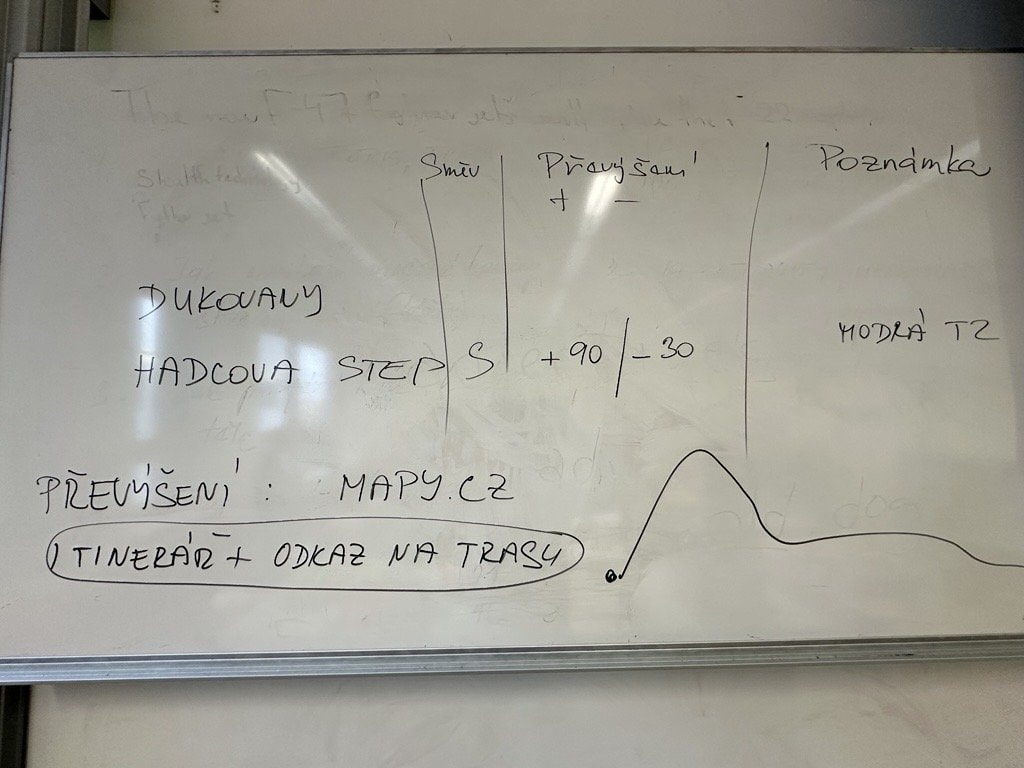 Směr Převýšení Poznámka
+ -
DUKOVANY
MODRÁ TZ
HADCOVA STEP S +90 / -30
PŘEVÝŠENÍ : MAPY.CZ
ITINERÁŘ + ODKAZ NA TRASU